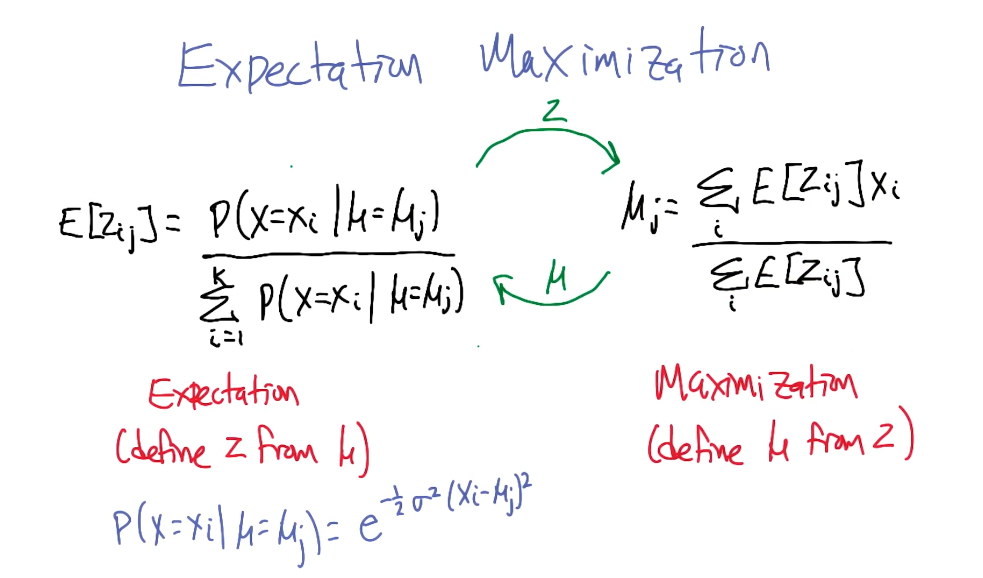 Expectation Maximization
z
E[Zij] = P(X=xi | μ=μj) / Σ_{i=1}^{k} P(X=xi | μ=μj)
μj = Σ_i E[Zij] xi / Σ_i E[Zij]
μ
Expectation
(define z from μ)
Maximization
(define μ from z)
P(X=xi | μ=μj) = e^{-½ σ² (xi-μj)²}